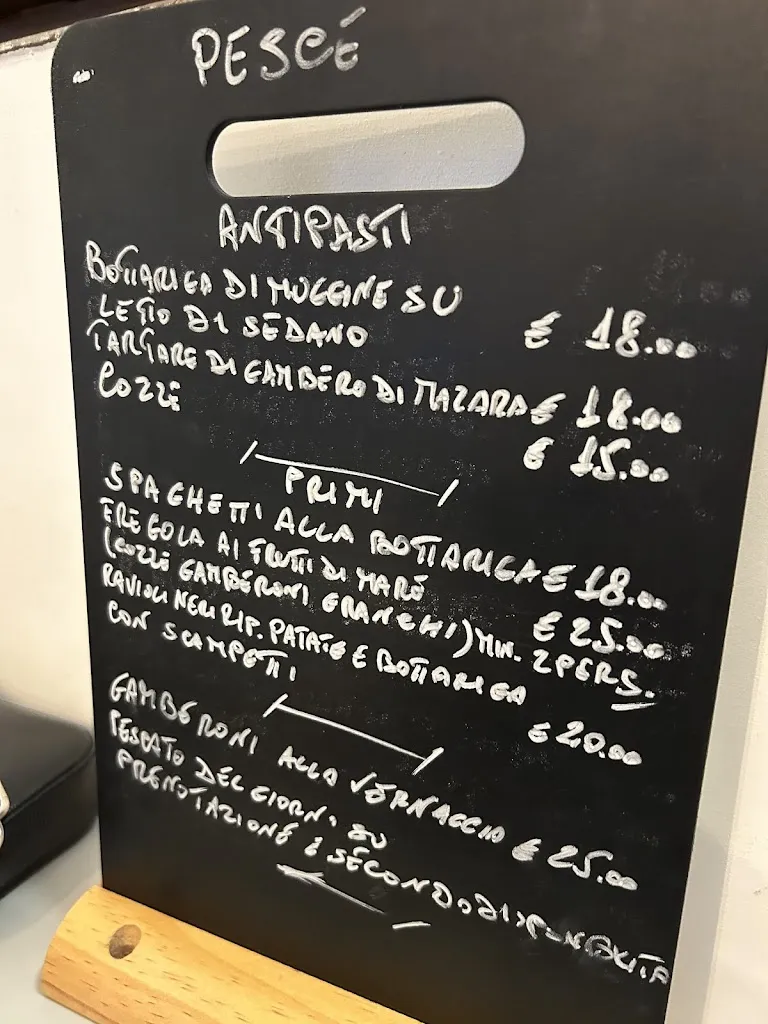 PESCÉ
ANTIPASTI
BOTTARIGA DI MUGGINE SU
LETTO DI SEDANO € 18.00
TARTARE DI GAMBERO DI MAZARA € 18.00
COZZE € 15.00
PRIMI
SPAGHETTI ALLA BOTTARIGA € 18.00
FREGOLA AI FRUTTI DI MARE € 25.00
(COZZE GAMBERONI GRANCHI) MIN. 2 PERS.
RAVIOLI NERI RIP. PATATE E BOTTARIGA
CON SCAMPETTI € 20.00
GAMBERONI ALLA VERNACCIA € 25.00
PESCATO DEL GIORNO SU
PRENOTAZIONE E SECONDO DISPONIBILITA